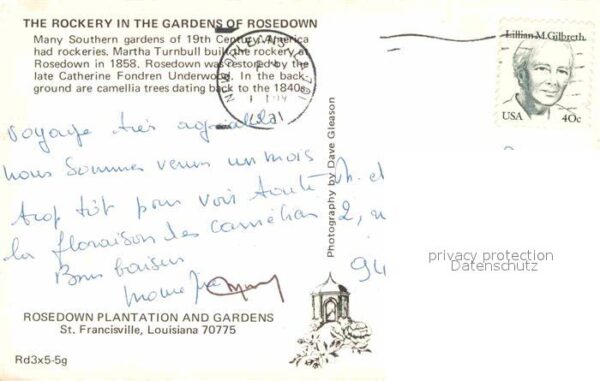 THE ROCKERY IN THE GARDENS OF ROSEDOWN
Many Southern gardens of 19th Century America
had rockeries. Martha Turnbull built the rockery at
Rosedown in 1858. Rosedown was restored by the
late Catherine Fondren Underwood. In the back-
ground are camellia trees dating back to the 1840s.
NEW ORLEANS, LA 701
Lillian M. Gilbreth
USA 40c
Voyage très agréable
nous sommes venus un mois
trop tôt pour voir toute
la floraison des camélias
Bons baisers
Photography by Dave Gleason
2,
94
privacy protection
Datenschutz
ROSEDOWN PLANTATION AND GARDENS
St. Francisville, Louisiana 70775
Rd3x5-5g